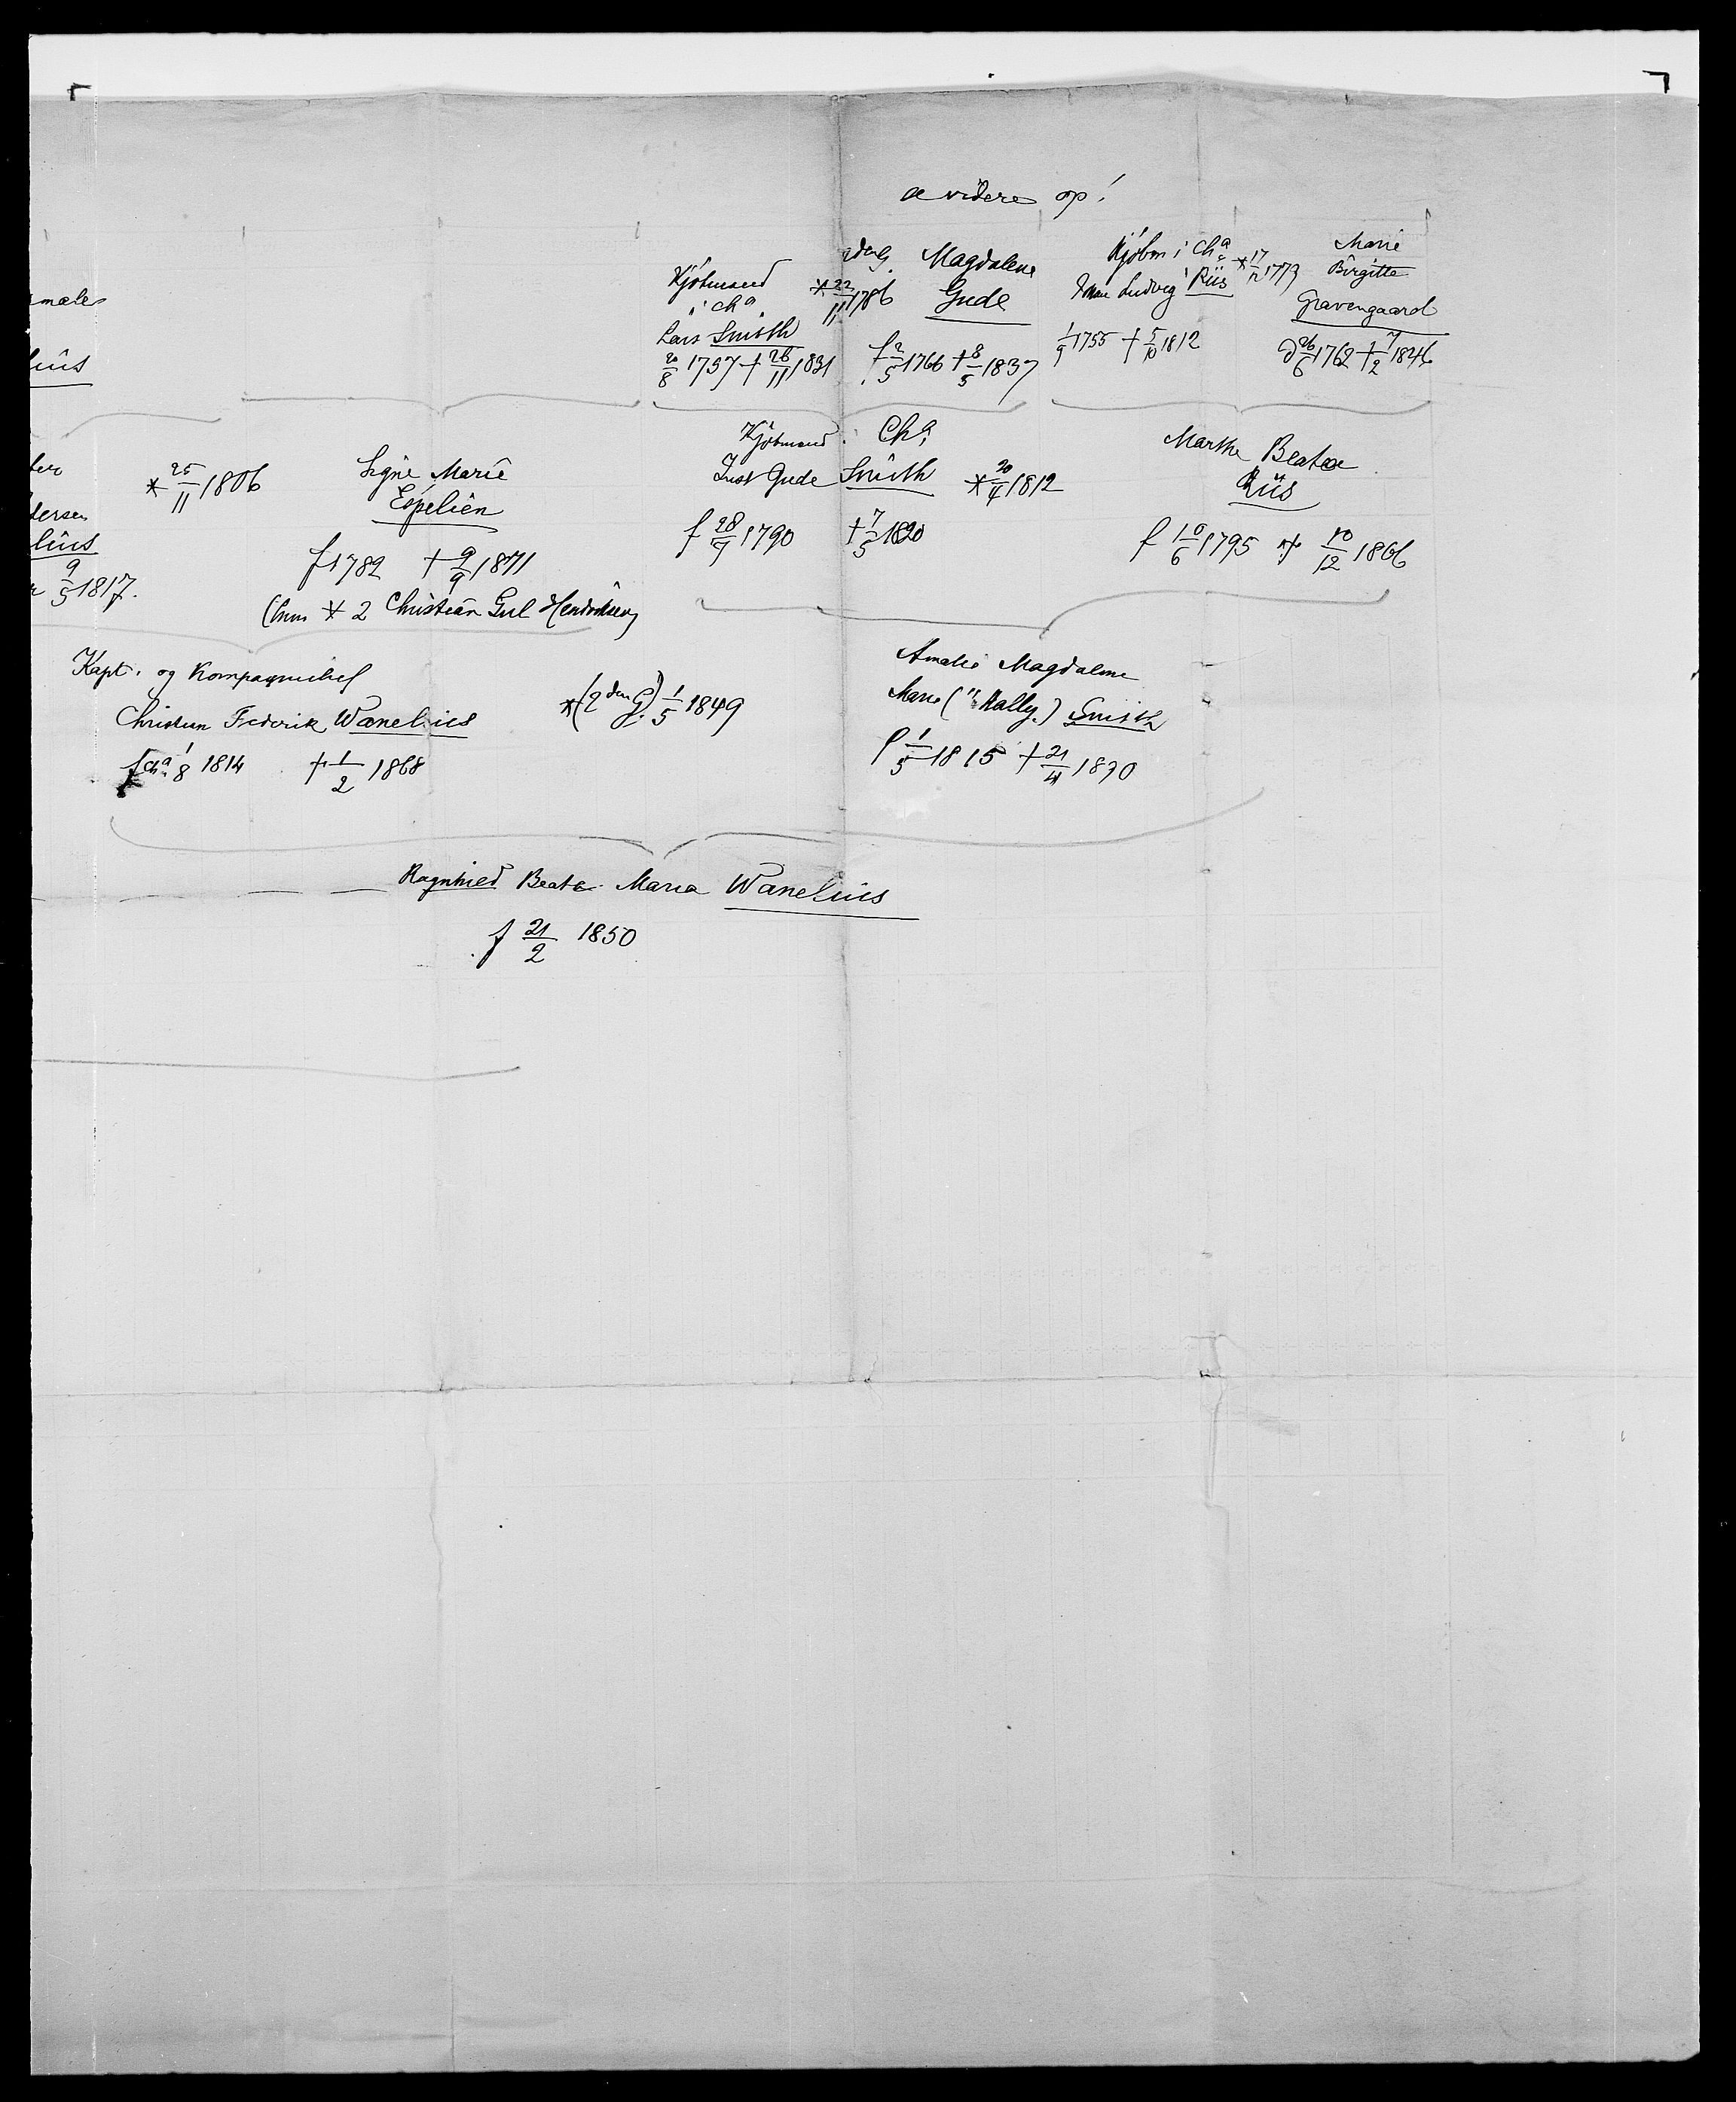 & videre op!
Kjøbmand
i Cha
Lars Smith
20/8 1757 † 26/11 1831
* 22/11 1786
Magdalena
Gude
f 2/5 1766 † 8/5 1837
Kjøbm i Cha
Ludvig Riis
1/9 1755 † 5/10 1812
* 17/12 1779
Marie
Birgitte
Gravengaard
26/6 1762 † 7/2 1846
males
lius
ter
dersen
lius
9/5 1817.
* 25/11 1806
Signe Marie
Espelien
f 1782 † 9/9 1871
(hun * 2 Christian Gul Hendriksen)
Kjøbmand i Cha,
Just Gude Smith
f 28/7 1790 † 7/5 1820
* 20/4 1812
Marthe Beatae
Riis
f 10/6 1795 † 10/12 1866
Kapt. og Kompagnichef
Christian Frederik Wanelius
f Cha 1/8 1814 † 1/2 1868
* (2den G.) 1/5 1849
Amalie Magdalene
Marie ("Mally") Smith
f 1/5 1815 † 21/4 1890
Ragnhild Beate Maria Wanelius
f 21/2 1850